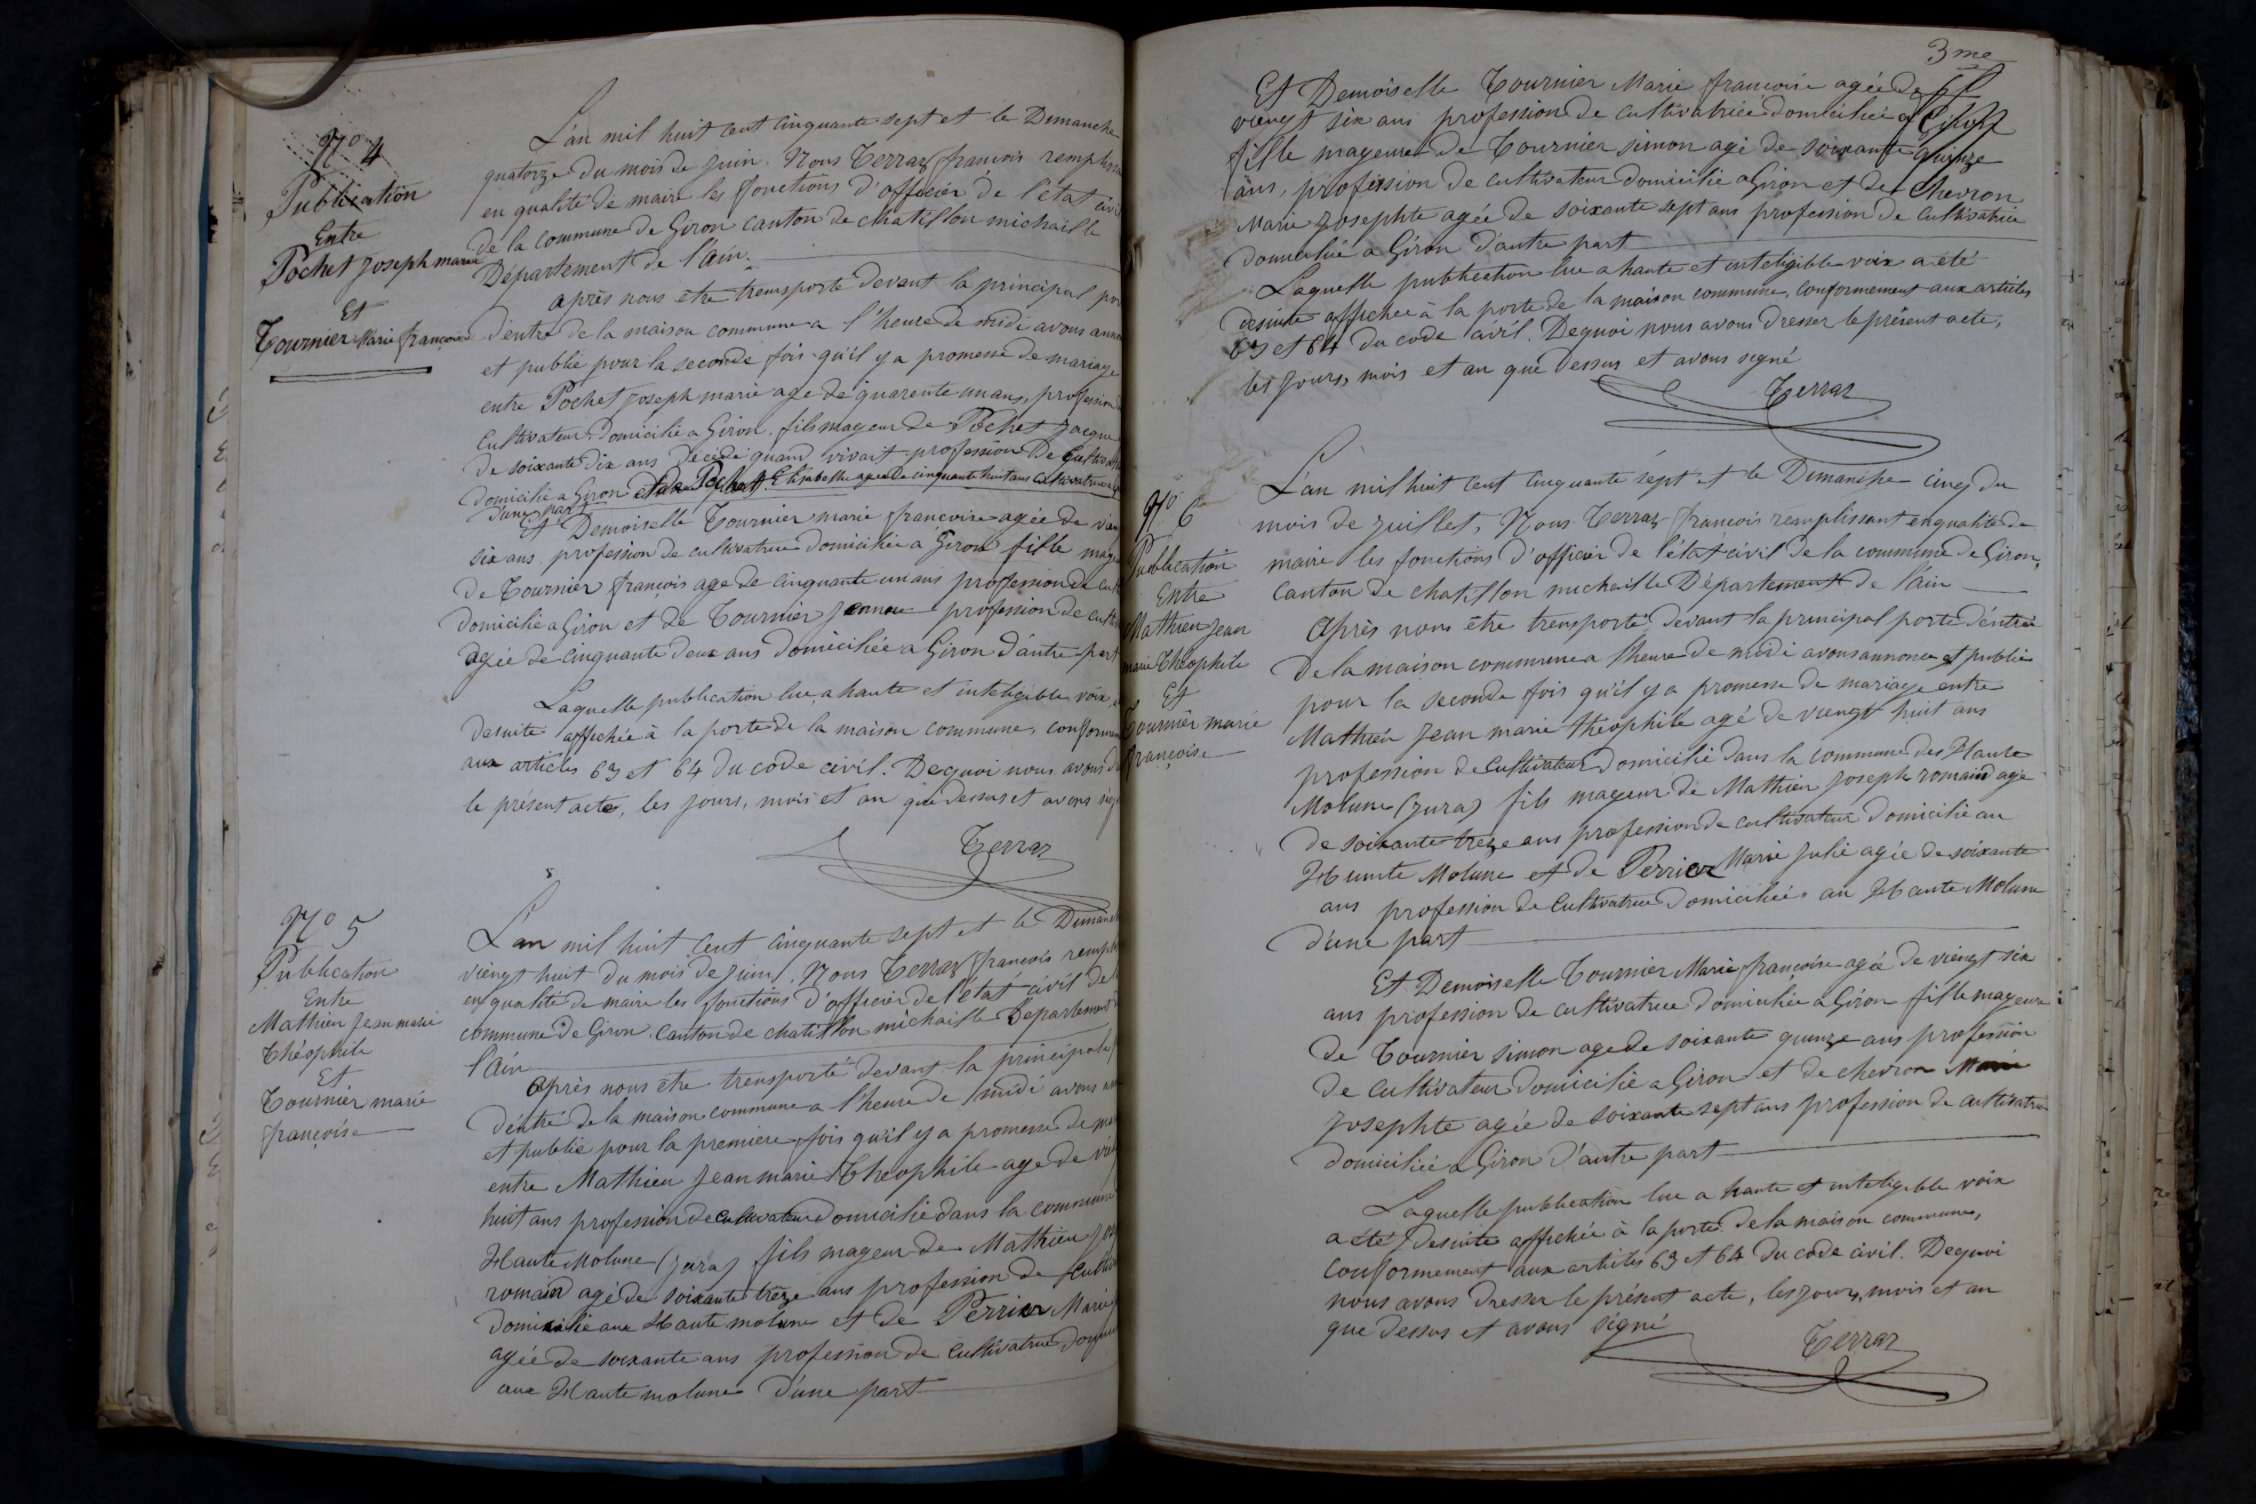 N° 4
Publication
Entre
Pochet Joseph marie
Et
Tournier Marie françoise
L'an mil huit cent cinquante sept et le Dimanche
quatorze du mois de juin. Nous Terraz françois remplissa
en qualité de maire les fonctions d'officier de l'état civi
de la commune de Giron canton de chatillon michaille
Département de l'ain.
après nous être transporté devant la principal por
d'entré de la maison commune a l'heure de midi avons annon
et publié pour la seconde fois qu'il y a promesse de mariage
entre Pochet Joseph marie age de quarente un ans, profession
Cultivateur Domicilié a Giron. fils mageur de Pochet Jacque
de soixante dix ans décédé quand vivait profession De Cultivat
domicilié a Giron et de Pochet Elisabelle agée de cinquante huit ans cultivatrice
d'une part
Et Demoiselle Tournier marie françoise agée de vien
six ans profession de cultivatrice domiciliée a Giron fille mag
de Tournier françois age de cinquante un ans profession de cult
domicilié a Giron et de Tournier Jeanne profession de culti
agée de cinquante deux ans domiciliée a Giron d'autre part
Laquelle publication lue a haute et inteligible voix,
desuite affichée à la porte de la maison commune, conformem
aux articles 63 et 64 du code civil. Dequoi nous avons d
le présent acte, les jours, mois et an que dessus et avons sig
Terraz
N° 5
Publication
Entre
Mathieu Jean marie
Théophile
Et
Tournier marie
françoise
L'an mil huit cent cinquante sept et le Dimanch
viengt huit du mois de juin. Nous Terraz françois rempl
en qualité de maire les fonctions d'officier de l'état civil de
commune de Giron. Canton de chatillon michaille Département
l'Ain
Après nous être transporté devant la principale
d'entré de la maison commune a l'heure de midi avons
et publié pour la premiere fois qu'il y a promesse de ma
entre Mathieu Jean marie Théophile age de vien
huit ans profession de cultivateur domicilié dans la commune
Haute Molune (Jura) fils mageur de Mathieu Jos
romaid agé de soixante treze ans profession de cultiv
domicilié aux Haute molune et de Perrier Marie
agée de soixante ans profession de cultivatrice
aux Haute molune d'une part
3me
Et Demoiselle Tournier Marie françoise agée de
viengt six ans profession de cultivatrice domiciliée a Giron
fille mageure de Tournier simon agé de soixante quinze
ans, profession de cultivateur domicilié a Giron et de Chevron
Marie Josephte agée de soixante sept ans profession de cultivatrice
domiciliée a Giron d'autre part
Laquelle publication lue a haute et inteligible voix a été
desuite affichée à la porte de la maison commune, conformement aux articles
63 et 64 du code civil. Dequoi nous avons dresser le présent acte,
les jours, mois et an que dessus et avons signé
Terraz
N° 6
Publication
Entre
Mathieu Jean
marie Théophile
Et
Tournier marie
françoise
L'an mil huit cent cinquante sept et le Dimanche cinq du
mois de juillet, Nous Terraz françois remplissant en qualité de
maire les fonctions d'officier de l'état civil de la commune de Giron,
canton de chatillon michaille Département de l'ain
Après nous être transporté devant la principal porte d'éntrée
de la maison commune a l'heure de midi avons annoncé et publié
pour la seconde fois qu'il y a promesse de mariage entre
Mathieu Jean marie théophile agé de viengt huit ans
profession de cultivateur domicilié dans la commune des Haute
Molune (Jura) fils mageur de Mathieu Joseph romaid agé
de soixante treze ans profession de cultivateur domicilié au
Haute Molune et de Perrier Marie Julie agée de soixante
ans profession de cultivatrice domiciliée au Haute Molune
d'une part
Et Demoiselle Tournier Marie françoise agée de viengt six
ans profession de cultivatrice domiciliée a Giron fille mageure
de Tournier simon age de soixante quinze ans profession
de cultivateur domicilié a Giron et de chevron Marie
Josephte agée de soixante sept ans profession de cultivatrice
domiciliée a Giron d'autre part
Laquelle publication lue a haute et inteligible voix
a été desuite affichée à la porte de la maison commune,
conformement aux articles 63 et 64 du code civil. Dequoi
nous avons dresser le présent acte, les jours, mois et an
que dessus et avons signé
Terraz